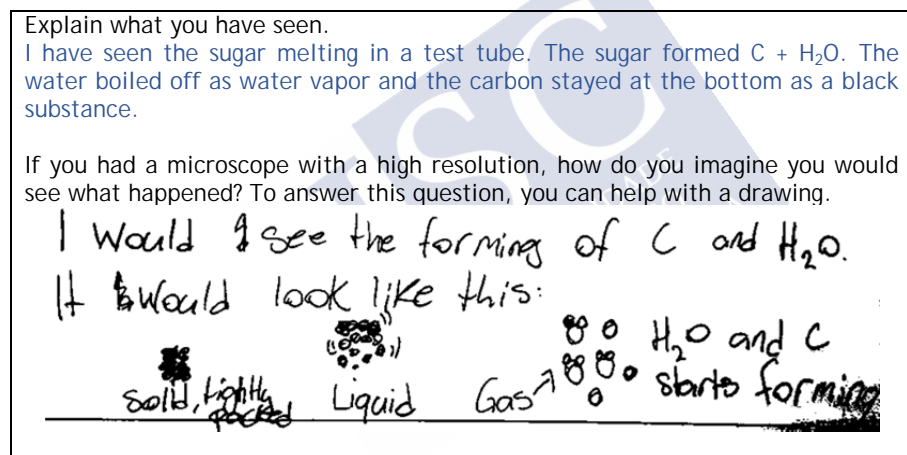 Explain what you have seen.
I have seen the sugar melting in a test tube. The sugar formed C + H₂O. The
water boiled off as water vapor and the carbon stayed at the bottom as a black
substance.
If you had a microscope with a high resolution, how do you imagine you would
see what happened? To answer this question, you can help with a drawing.
I would see the forming of C and H₂O.
It would look like this:
Solid, tightly packed
Liquid
Gas
H₂O and C
starts forming